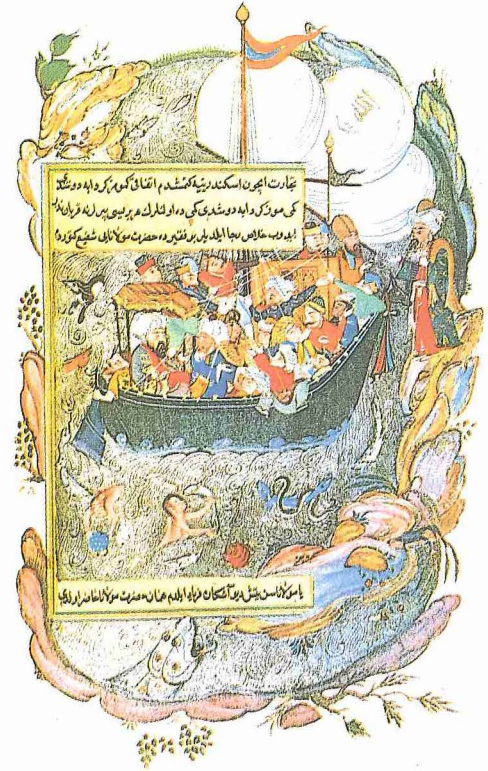 تجارت ایچون اسکندریه یه کتمشدم اتفاقی کومز کردابه دوشدی
کی موز کردابه دوشدی کمی ده اولنلرك هر بریسی بیرلرنه قربان نذر
ایدوب خلاص رجا ایلدیلر بو فقیر ده حضرت مولانایی شفیع کتوردم
یا مولانا سن یتیش دیو آشکاره فریاد ایلدم همان حضرت مولانا حاضر اولدی